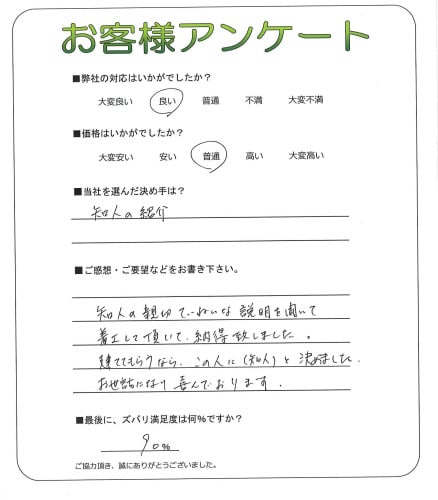 お客様アンケート
■弊社の対応はいかがでしたか？
大変良い 良い 普通 不満 大変不満
■価格はいかがでしたか？
大変安い 安い 普通 高い 大変高い
■当社を選んだ決め手は？
知人の紹介
■ご感想・ご要望などをお書き下さい。
知人の親切ていねいな説明を聞いて
着工して頂いて、納得致しました。
建ててもらうなら、この人に（知人）と決めました。
お世話になり喜んでおります。
■最後に、ズバリ満足度は何%ですか？
90%
ご協力頂き、誠にありがとうございました。